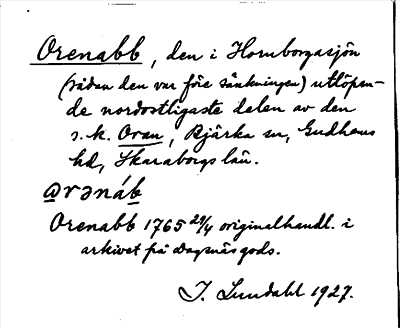 Orenabb, den i Hornborgasjön
(sådan den var före sänkningen) utlöpan-
de nordostligaste delen av den
s.k. Oran, Bjärka sn, Gudhems
hd, Skaraborgs län.
@rənáb
Orenabb 1765 29/4 originalhandl. i
arkivet på Dagsnäs gods.
I. Lundahl 1927.